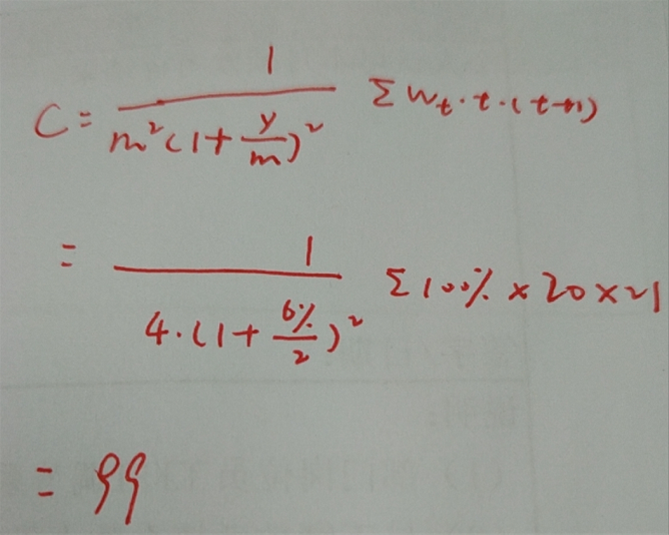 C = \frac{1}{m^2(1+\frac{y}{m})^2} Σ w_t · t · (t+1)
= \frac{1}{4·(1+\frac{6%}{2})^2} Σ 100% × 20 × 21
= 99